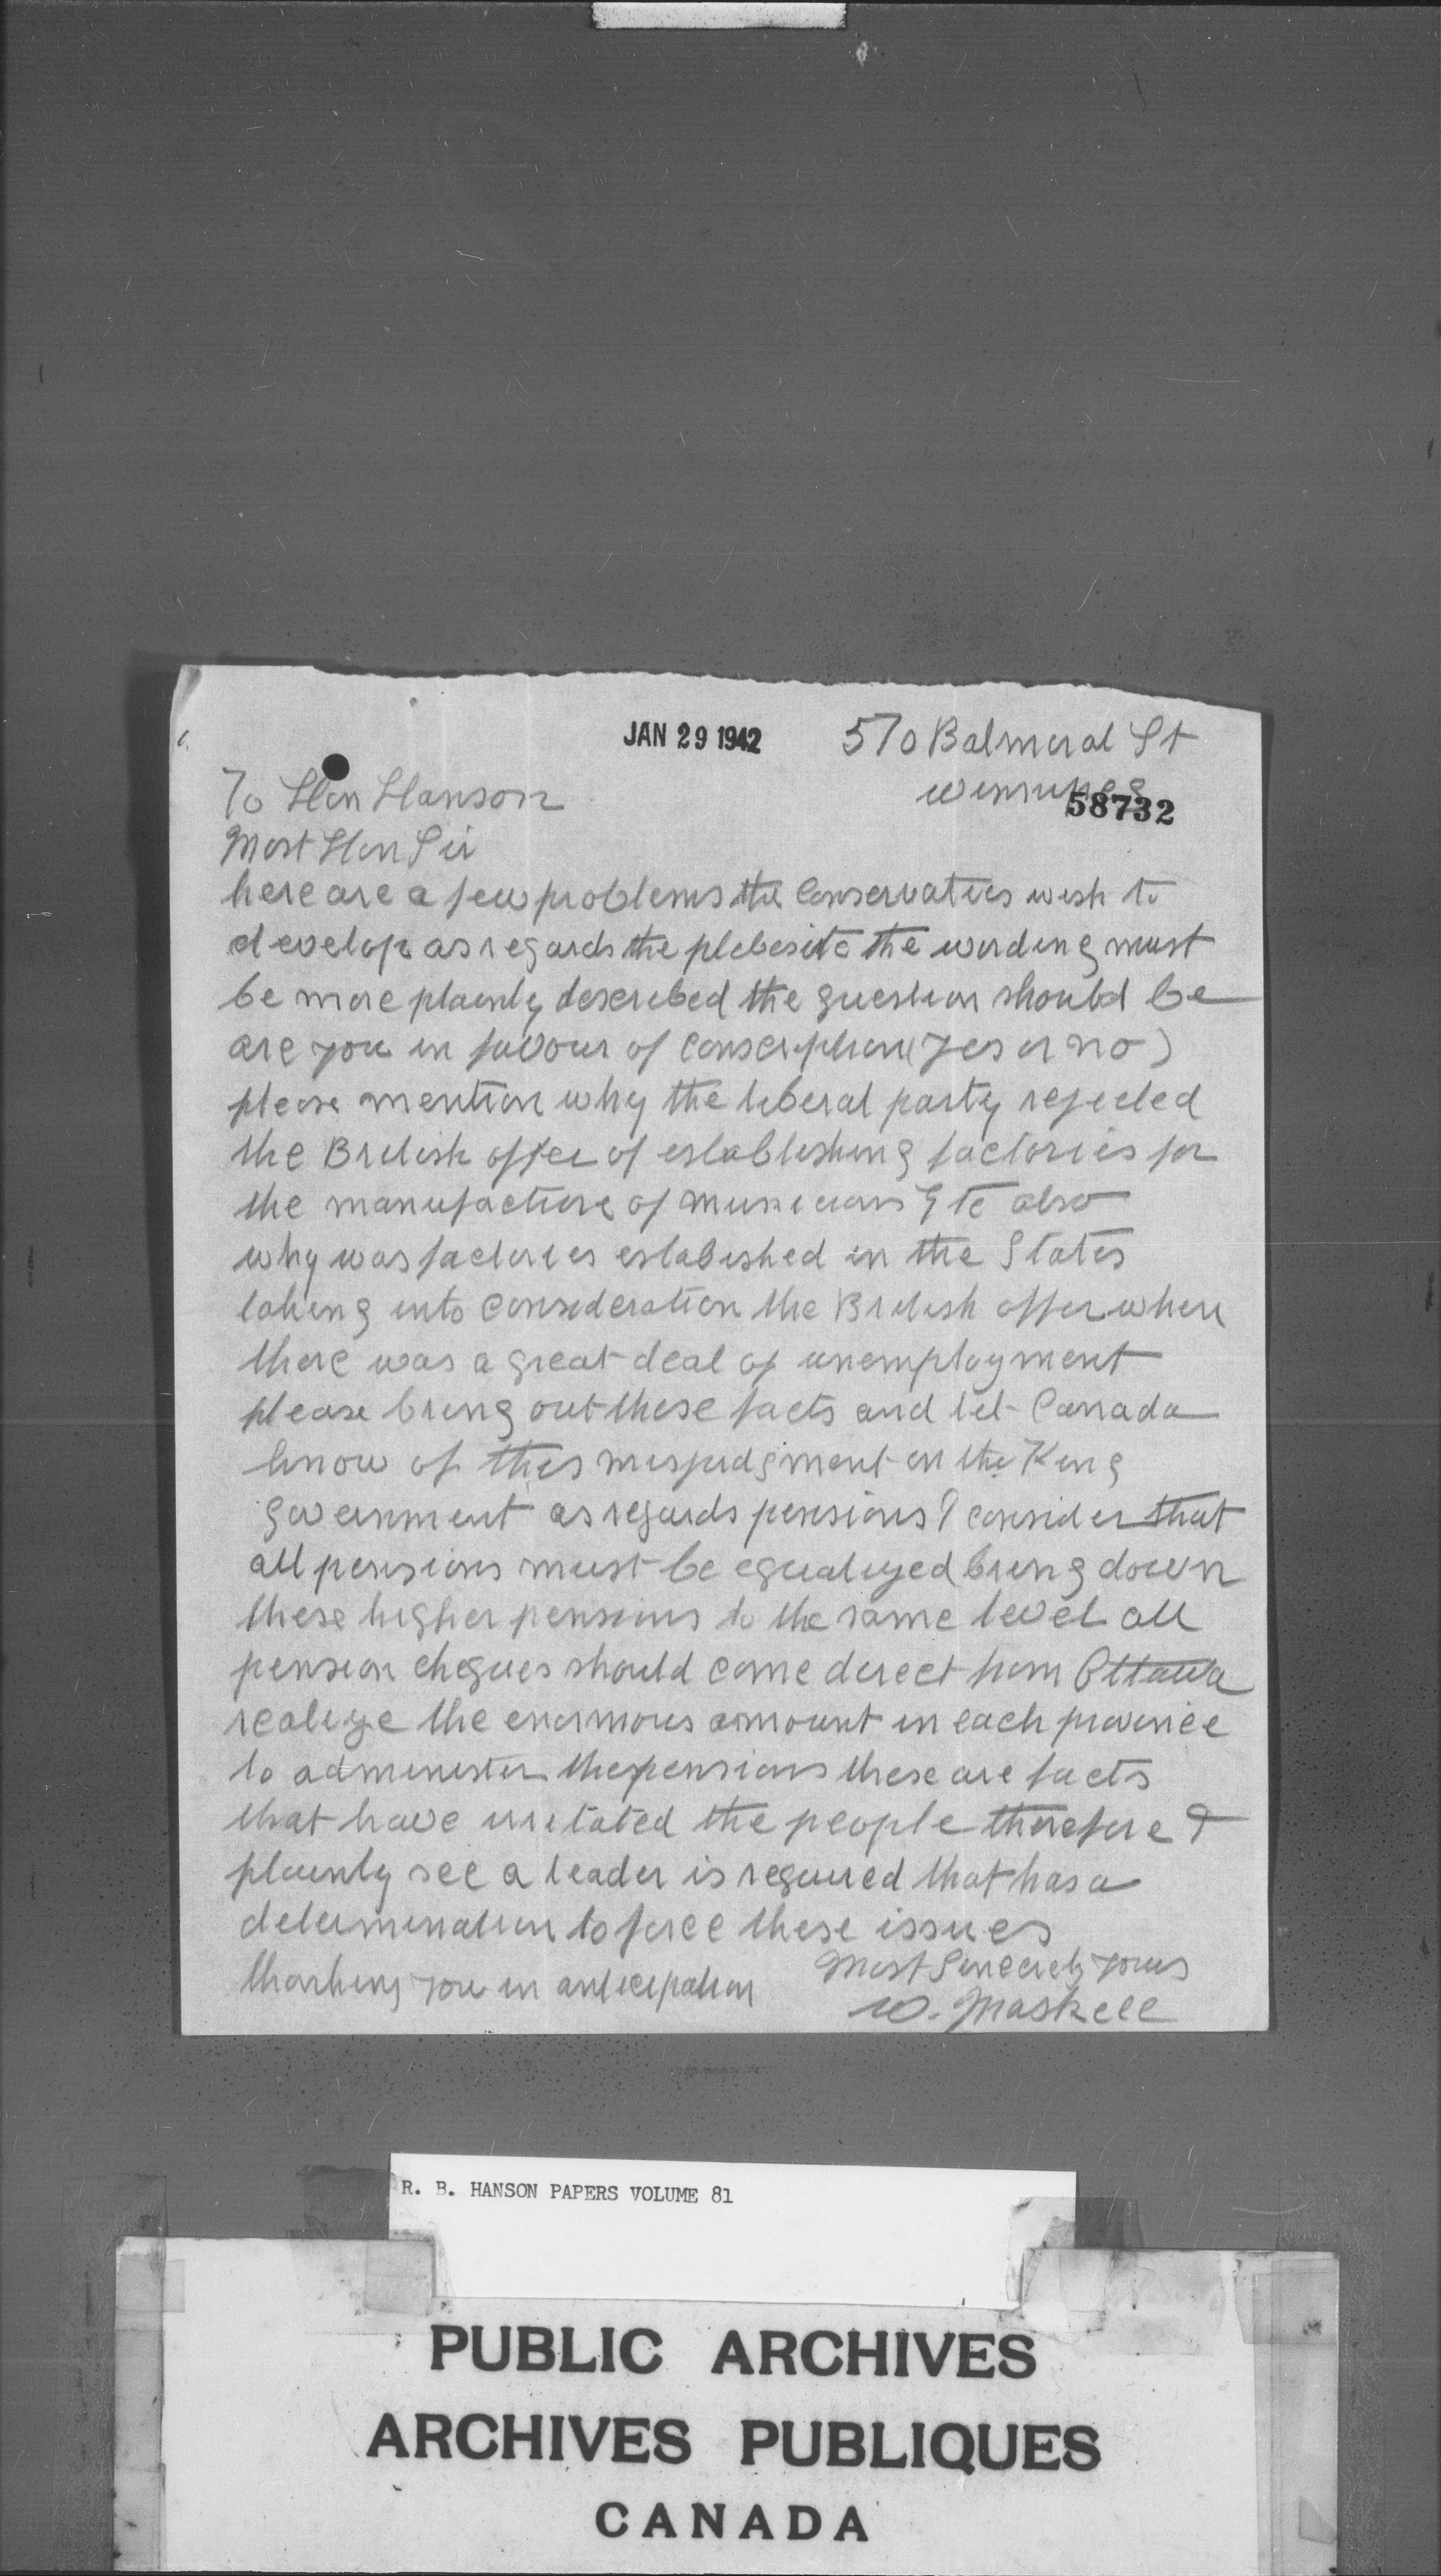 JAN 29 1942
570 Balmoral St
Winnipeg
58732
To Hon Hanson
Most Hon Sir
here are a few problems the Conservatives wish to
develop as regards the plebesite the wording must
be more plainly described the question should be
are you in favour of Conscription (yes or no)
please mention why the liberal party rejected
the British offer of establishing factories for
the manufacture of municians Etc also
why was factories establised in the States
taking into consideration the British offer where
there was a great deal of unemployment
please bring out these facts and let Canada
know of this misjudgment on the King
government as regards pensions I consider that
all pensions must be equalized bring down
these higher pensions to the same level all
pension cheques should come direct from Ottawa
realize the enormous amount in each province
to administer the pensions these are facts
that have irritated the people therefore I
plainly see a leader is required that has a
determination to force these issues
thanking you in anticipation
Most Sincerely yours
W. Maskell
R. B. HANSON PAPERS VOLUME 81
PUBLIC ARCHIVES
ARCHIVES PUBLIQUES
CANADA